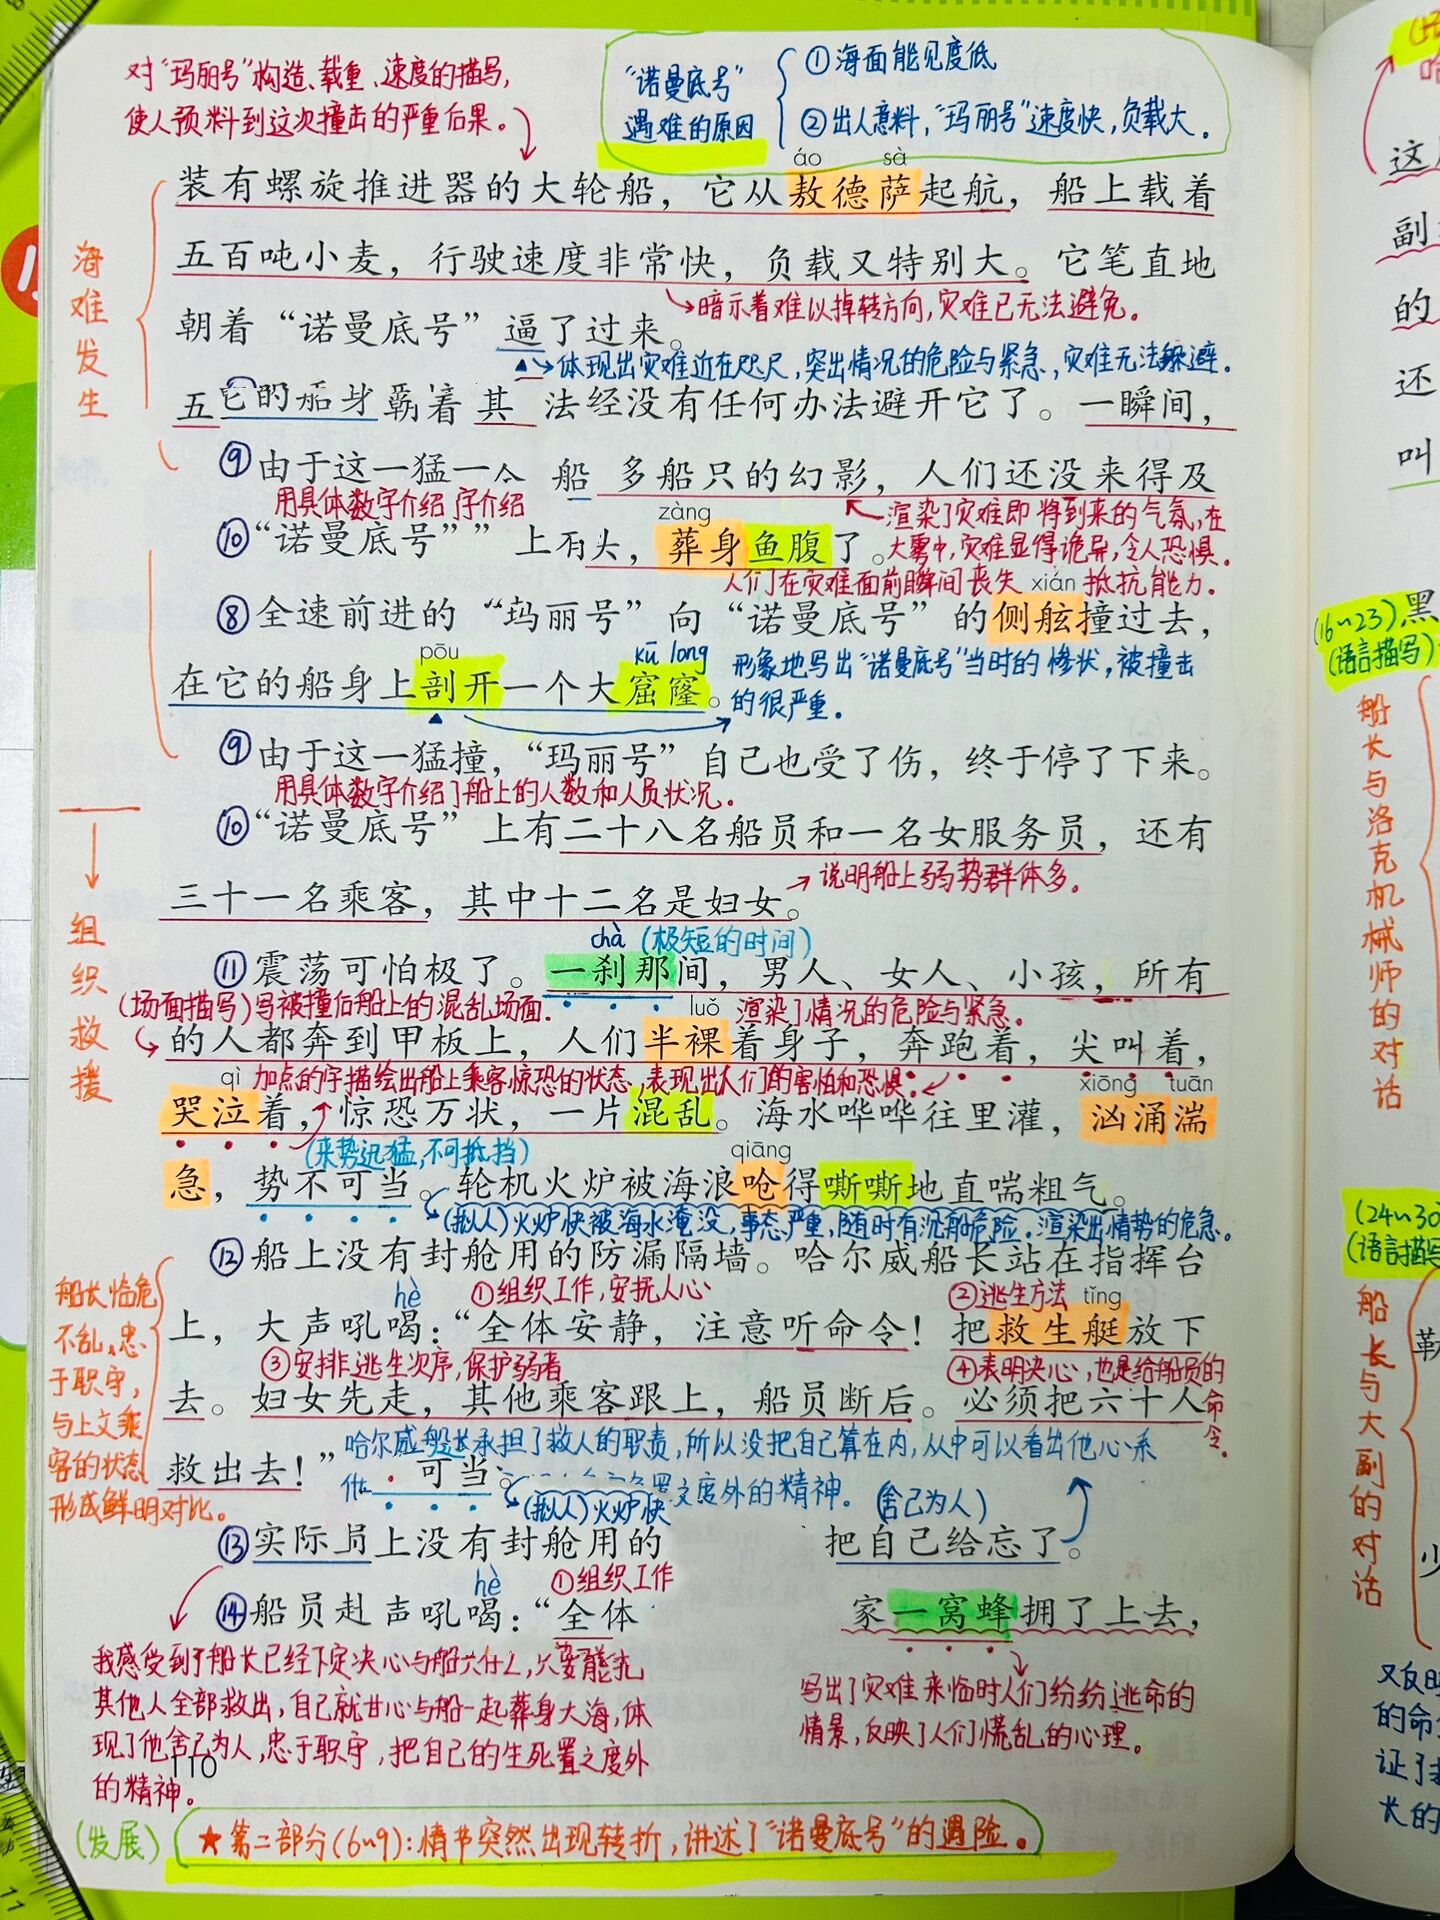 对“玛丽号”构造、载重、速度的描写,
使人预料到这次撞击的严重后果。
“诺曼底号”
遇难的原因
①海面能见度低
②出人意料,“玛丽号”速度快,负载大。
áo sà
装有螺旋推进器的大轮船，它从敖德萨起航，船上载着
五百吨小麦，行驶速度非常快，负载又特别大。它笔直地
暗示着难以掉转方向,灾难已无法避免。
朝着“诺曼底号”逼了过来。
体现出灾难近在咫尺,突出情况的危险与紧急,灾难无法躲避.
海难发生
五它的船身 霸着 其 法经没有任何办法避开它了。一瞬间，
⑨由于这一猛一 船 多船只的幻影，人们还没来得及
用具体数字介绍 字介绍
渲染了灾难即将到来的气氛,在
zàng
⑩“诺曼底号”” 上有头，葬身鱼腹了。
大雾中,灾难显得诡异,令人恐惧.
人们在灾难面前瞬间丧失 xián 抵抗能力.
⑧全速前进的“玛丽号”向“诺曼底号”的侧舷撞过去，
pōu kū long
形象地写出“诺曼底号”当时的惨状,被撞击
在它的船身上剖开一个大窟窿。
的很严重.
⑨由于这一猛撞，“玛丽号”自己也受了伤，终于停了下来。
用具体数字介绍了船上的人数和人员状况.
⑩“诺曼底号”上有二十八名船员和一名女服务员，还有
说明船上弱势群体多.
三十一名乘客，其中十二名是妇女。
组织救援
chà (极短的时间)
⑪震荡可怕极了。一刹那间，男人、女人、小孩，所有
(场面描写)写被撞后船上的混乱场面.
luǒ 渲染了情况的危险与紧急.
的人都奔到甲板上，人们半裸着身子，奔跑着，尖叫着，
qì 加点的字描绘出船上乘客惊恐的状态,表现出人们的害怕和恐惧.
xiōng tuān
哭泣着，惊恐万状，一片混乱。海水哗哗往里灌，汹涌湍
(来势迅猛,不可抵挡)
qiāng
急，势不可当。轮机火炉被海浪呛得嘶嘶地直喘粗气。
(拟人)火炉快被海水淹没,事态严重,随时有沉船危险.渲染出情势的危急.
⑫船上没有封舱用的防漏隔墙。哈尔威船长站在指挥台
hè ①组织工作,安抚人心
②逃生方法 tǐng
上，大声吼喝：“全体安静，注意听命令！把救生艇放下
③安排逃生次序,保护弱者
④表明决心,也是给船员的命令.
去。妇女先走，其他乘客跟上，船员断后。必须把六十人
哈尔威船长承担了救人的职责,所以没把自己算在内,从中可以看出他心系
救出去！”
可当。
度外的精神. (舍己为人)
(拟人)火炉快
船长临危
不乱,忠
于职守,
与上文乘
客的状态
形成鲜明对比。
⑬实际 上没有封舱用的 把自己给忘了。
hè ①组织工作
⑭船员赴 声吼喝：“全体 家一窝蜂拥了上去，
我感受到了船长已经下定决心与船
其他人全部救出,自己就甘心与船一起葬身大海,体
现了他舍己为人,忠于职守,把自己的生死置之度外
的精神.
写出了灾难来临时人们纷纷逃命的
情景,反映了人们慌乱的心理.
110
(发展)
★第二部分(6~9):情节突然出现转折,讲述了“诺曼底号”的遇险.
这
副
的
还
叫
(16~23)黑
(语言描写)
船长与洛克机械师的对话
(24~30
(语言描写
船长与大副的对话
革力
少
又反映
的命
证了
长的
11